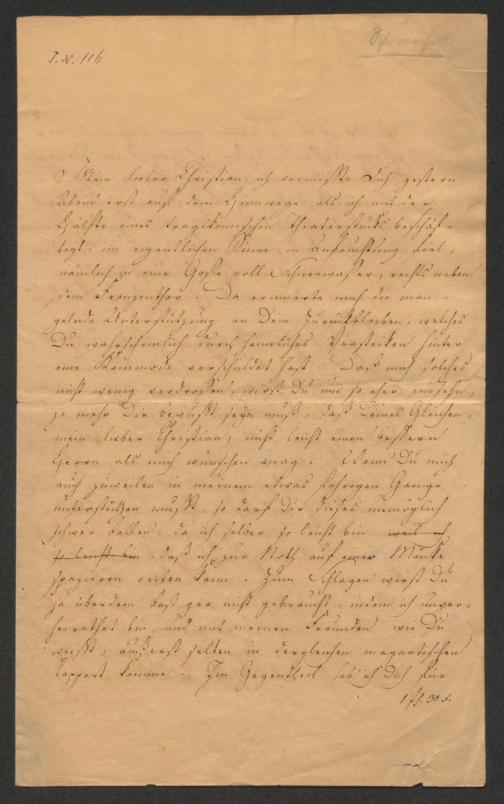 I.N. 116
Mein lieber Christian, ich vermißte Dich gestern
Abend erst auf dem Heimwege als ich mit der
Hälfte eines tragikomischen Theaterstücks beschäf-
tigt, im eigentlichen Sinne in Anfeuchtung fiel,
nämlich in eine Gosse voll Schneewasser, rechts neben
dem Franzenthor. Da erinnerte mich die man-
gelnde Unterstützung an Dein Zurückbleiben, welches
Du wahrscheinlich durch heimliches Verstecken hinter
eine Kommode verschuldet hast. Daß mich solches
nicht wenig verdrossen, wirst Du um so eher einsehn,
je mehr Dir bewußt seyn muß, daß Deines Gleichen,
mein lieber Christian, nicht leicht einen bessern
Herrn als mich wünschen mag. Wenn Du mich
auch zuweilen in meinem etwas Gange
unterstützen mußt, so darf Dir dieses unmöglich
schwer fallen, da ich selber so leicht bin weil ich
so leicht bin, daß ich zur Noth auf einer
spazieren reiten kann. Zum Schlagen wirst Du
ja überdem fast gar nicht gebraucht, indem ich unver-
heirathet bin, und mit meinen Freunden wie Du
weißt, äußerst selten in dergleichen magnetischen
Rapport komme. Im Gegentheil hab ich Dich für
1 fl. 30 x.